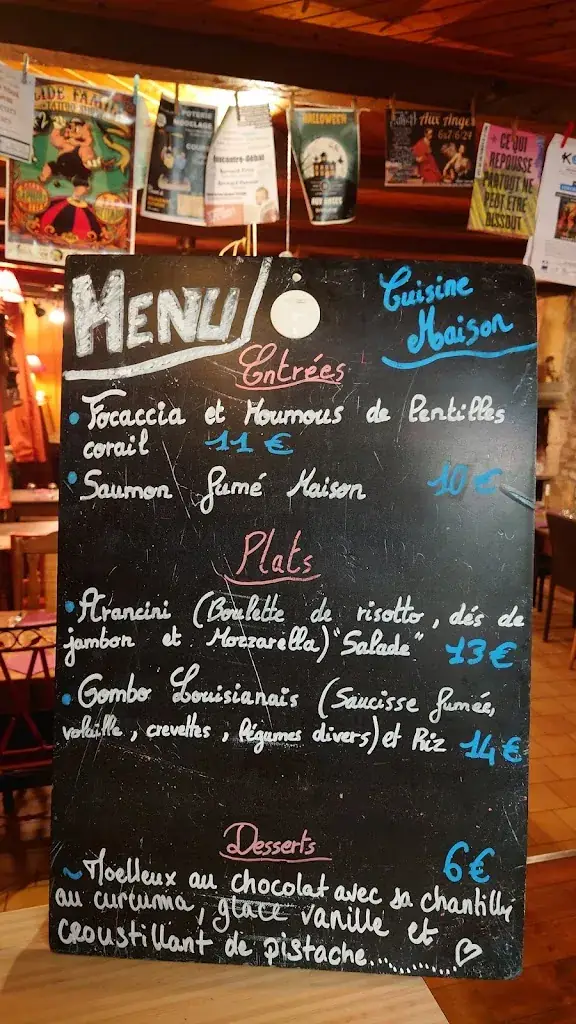 HALLOWEEN
Aux Anges
CE QUI
REPOUSSE
PARTOUT NE
PEUT ÊTRE
DISSOUT
MENU
Cuisine
Maison
Entrées
• Focaccia et Houmous de lentilles
corail 11 €
• Saumon fumé Maison 10 €
Plats
• Arancini (Boulette de risotto, dés de
jambon et Mozzarella) "Salade" 13 €
• Gombo Louisianais (Saucisse fumée,
volaille, crevettes, légumes divers) et Riz 14 €
Desserts
6 €
~ Moelleux au chocolat avec sa chantilly
au curcuma, glace vanille et
croustillant de pistache...........